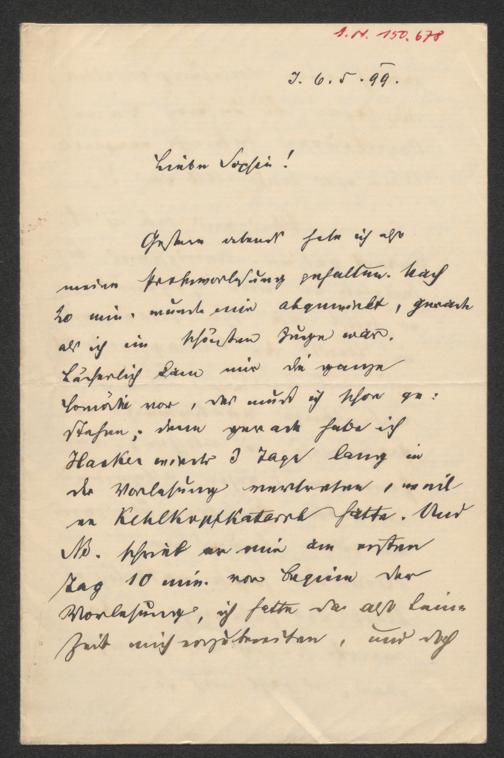 I. N. 150.678
J. 6. 5. 99.
Liebe Sophie!
Gestern abends habe ich also
meine Probevorlesung gehalten. Nach
20 min. wurde mir abgewinkt, gerade
als ich im schönsten Zuge war.
Lächerlich kam mir die ganze
Comödie vor, das muß ich schon ge-
stehen; denn gerade habe ich
Hacker wieder 3 Tage lang in
der Vorlesung vertreten, weil
er Kehlkopfkatarrh hatte. Und
Nb. schrieb er mir am ersten
Tag 10 min. vor Beginn der
Vorlesung, ich hatte da also keine
Zeit mich vorzubereiten, und doch